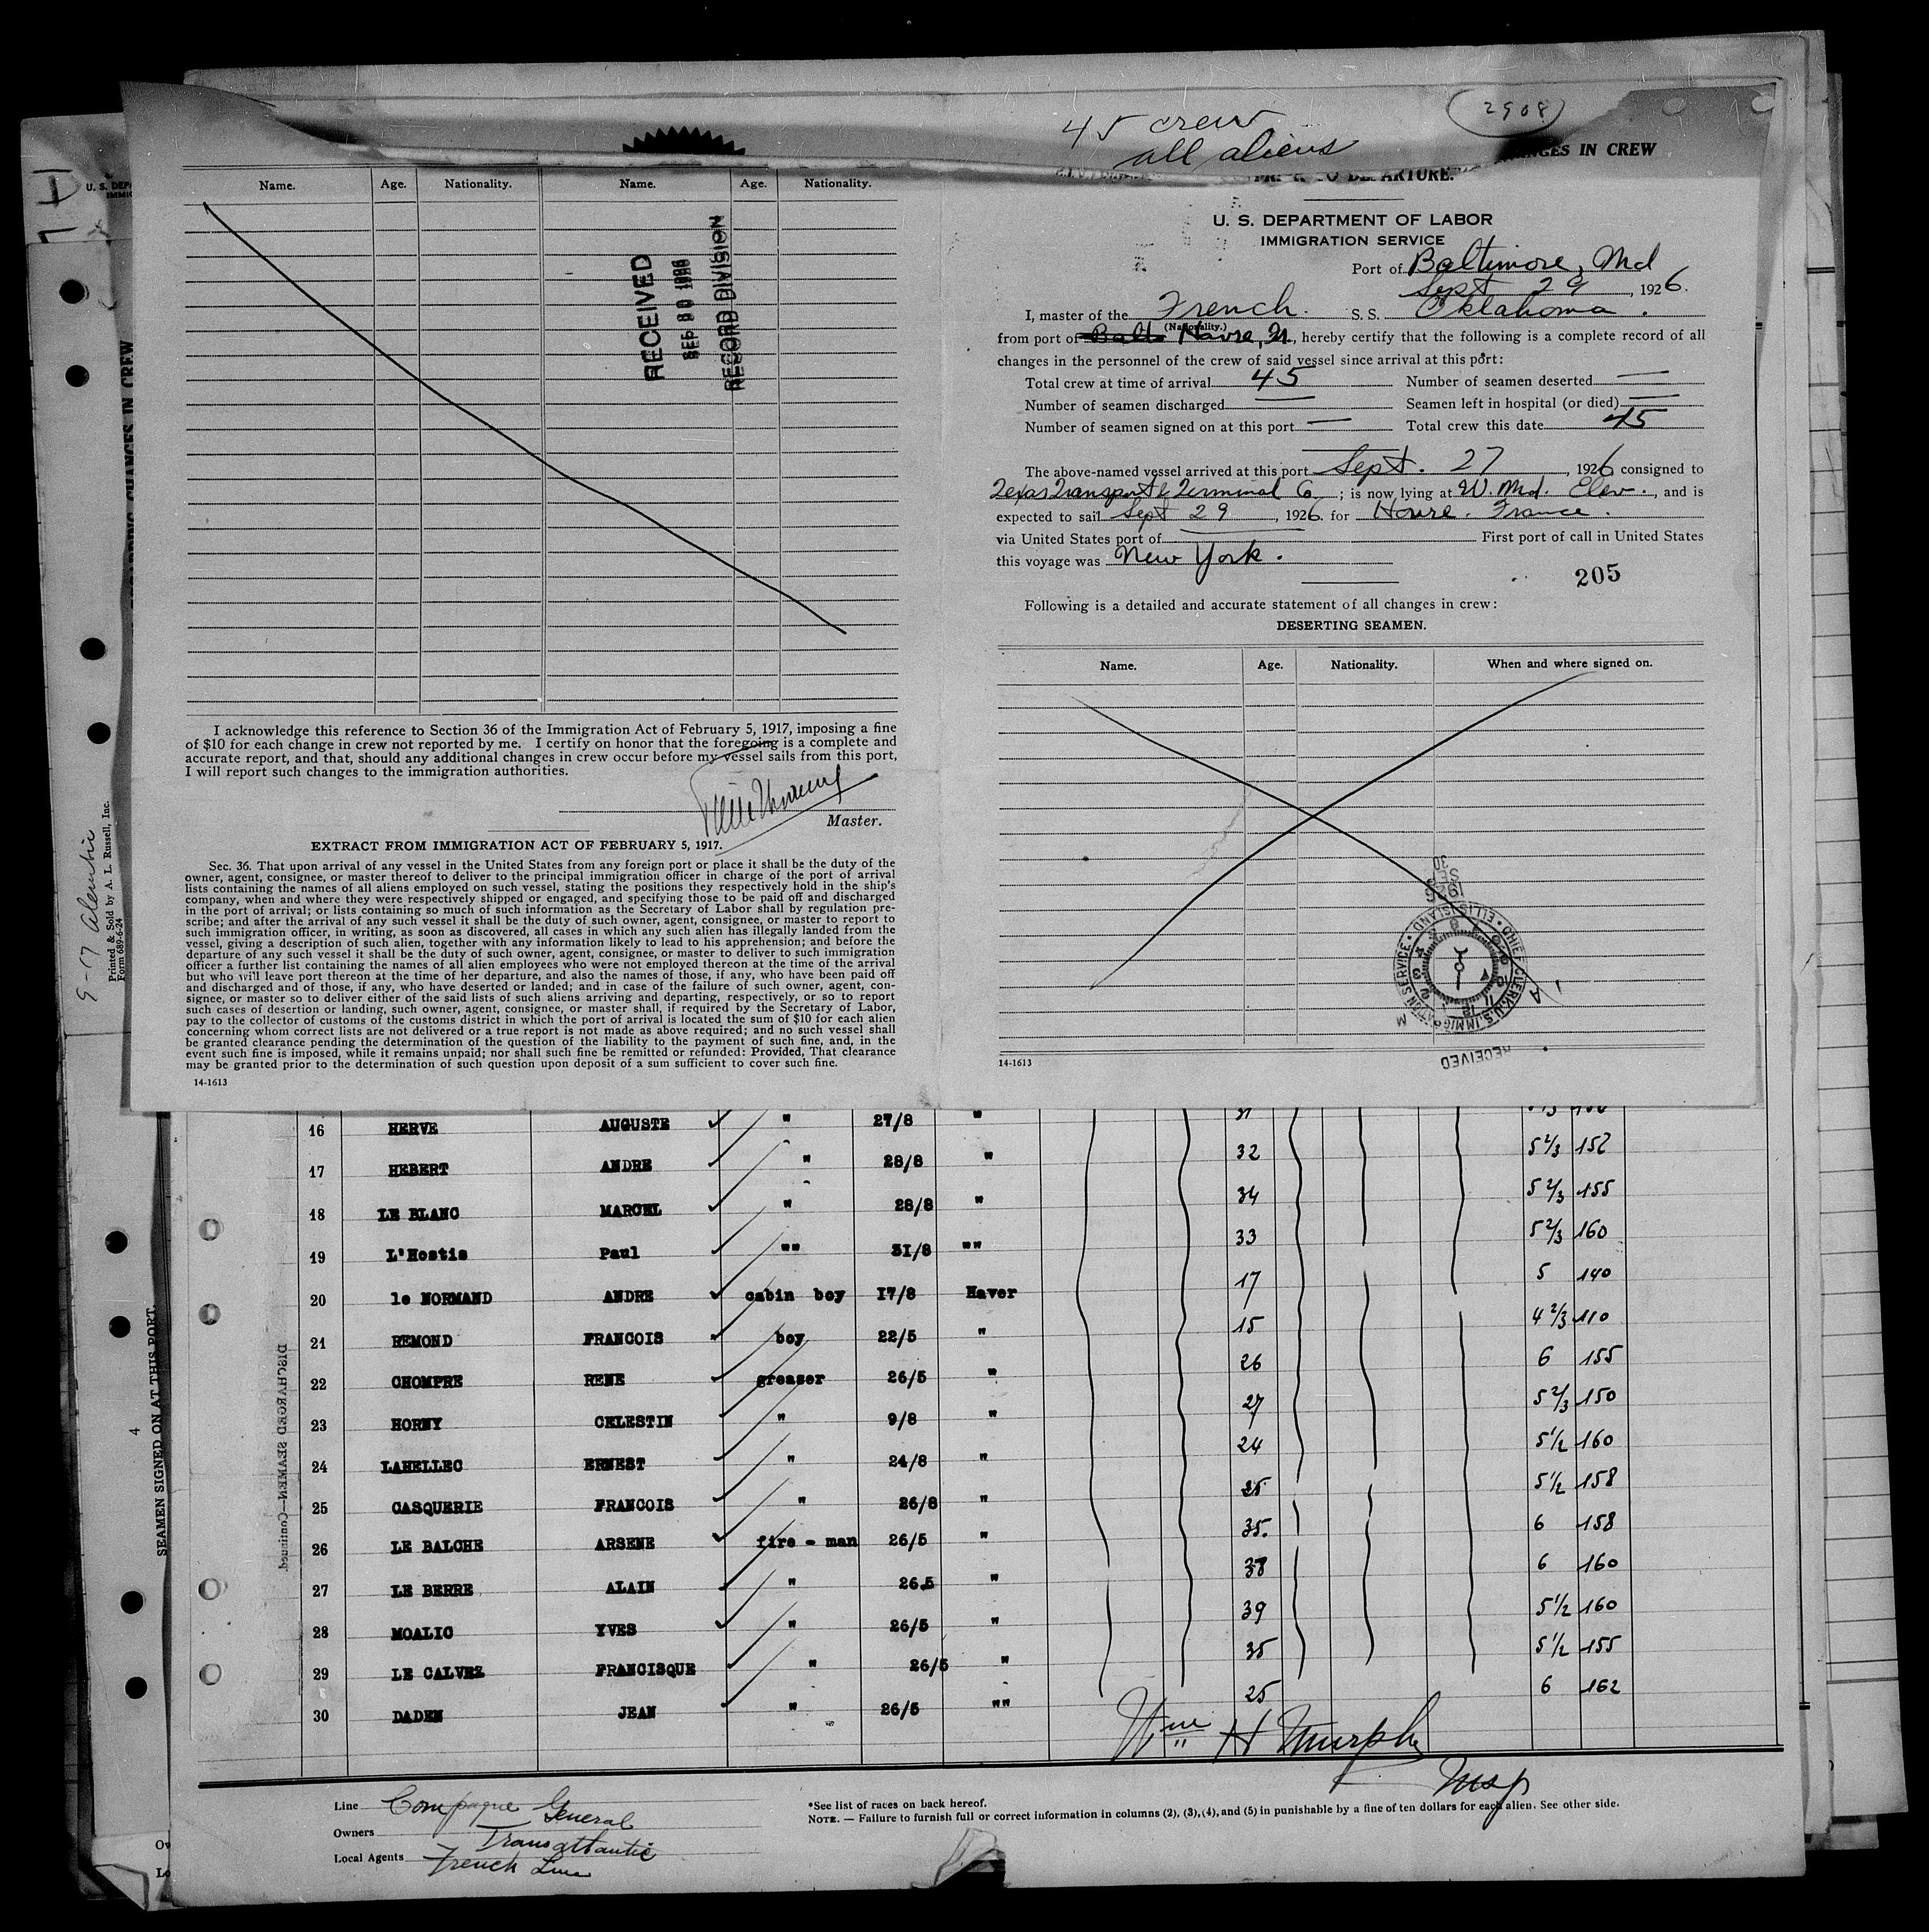 2908
45 crew
all aliens
CHANGES IN CREW
TO DEPARTURE.
Name. Age. Nationality. Name. Age. Nationality.
RECEIVED
SEP 30 1926
RECORD DIVISION
I acknowledge this reference to Section 36 of the Immigration Act of February 5, 1917, imposing a fine
of $10 for each change in crew not reported by me. I certify on honor that the foregoing is a complete and
accurate report, and that, should any additional changes in crew occur before my vessel sails from this port,
I will report such changes to the immigration authorities.
Master.
EXTRACT FROM IMMIGRATION ACT OF FEBRUARY 5, 1917.
Sec. 36. That upon arrival of any vessel in the United States from any foreign port or place it shall be the duty of the
owner, agent, consignee, or master thereof to deliver to the principal immigration officer in charge of the port of arrival
lists containing the names of all aliens employed on such vessel, stating the positions they respectively hold in the ship's
company, when and where they were respectively shipped or engaged, and specifying those to be paid off and discharged
in the port of arrival; or lists containing so much of such information as the Secretary of Labor shall by regulation pre-
scribe; and after the arrival of any such vessel it shall be the duty of such owner, agent, consignee, or master to report to
such immigration officer, in writing, as soon as discovered, all cases in which any such alien has illegally landed from the
vessel, giving a description of such alien, together with any information likely to lead to his apprehension; and before the
departure of any such vessel it shall be the duty of such owner, agent, consignee, or master to deliver to such immigration
officer a further list containing the names of all alien employees who were not employed thereon at the time of the arrival
but who will leave port thereon at the time of her departure, and also the names of those, if any, who have been paid off
and discharged and of those, if any, who have deserted or landed; and in case of the failure of such owner, agent, con-
signee, or master so to deliver either of the said lists of such aliens arriving and departing, respectively, or so to report
such cases of desertion or landing, such owner, agent, consignee, or master shall, if required by the Secretary of Labor,
pay to the collector of customs of the customs district in which the port of arrival is located the sum of $10 for each alien
concerning whom correct lists are not delivered or a true report is not made as above required; and no such vessel shall
be granted clearance pending the determination of the question of the liability to the payment of such fine, and, in the
event such fine is imposed, while it remains unpaid; nor shall such fine be remitted or refunded: Provided, That clearance
may be granted prior to the determination of such question upon deposit of a sum sufficient to cover such fine.
14-1613
U. S. DEPARTMENT OF LABOR
IMMIGRATION SERVICE
Port of Baltimore, Md
Sept 29, 1926.
I, master of the French. S. S. Oklahoma.
(Nationality.)
from port of Balto Havre, Fr., hereby certify that the following is a complete record of all
changes in the personnel of the crew of said vessel since arrival at this port:
Total crew at time of arrival 45 Number of seamen deserted —
Number of seamen discharged — Seamen left in hospital (or died) —
Number of seamen signed on at this port — Total crew this date 45
The above-named vessel arrived at this port Sept. 27, 1926, consigned to
Texas Transport & Terminal Co; is now lying at W. Md. Elev., and is
expected to sail Sept 29, 1926. for Havre. France.
via United States port of — First port of call in United States
this voyage was New York.
205
Following is a detailed and accurate statement of all changes in crew:
DESERTING SEAMEN.
Name. Age. Nationality. When and where signed on.
1926
SEP
30
CHIEF CLERK, U.S. IMMIGRATION SERVICE • ELLIS ISLAND •
RECEIVED
14-1613
16 HERVE AUGUSTE " 27/8 " 31
17 HEBERT ANDRE " 28/8 " 32 5 2/3 152
18 LE BLANC MARCEL " 28/8 " 34 5 2/3 155
19 L'Hostis Paul "" 31/8 "" 33 5 2/3 160
20 le NORMAND ANDRE cabin boy 17/8 Haver 17 5 140
21 REMOND FRANCOIS boy 22/5 " 15 4 2/3 110
22 CHOMPRE RENE greaser 26/5 " 26 6 155
23 HORNY CELESTIN " 9/8 " 27 5 2/3 150
24 LAHELLEC ERNEST " 24/8 " 24 5 1/2 160
25 CASQUERIE FRANCOIS " 26/8 " 25 5 1/2 158
26 LE BALCHE ARSENE fire - man 26/5 " 35. 6 158
27 LE BERRE ALAIN " 26.5 " 38 6 160
28 MOALIC YVES " 26/5 " 39 5 1/2 160
29 LE CALVEZ FRANCISQUE " 26/5 " 35 5 1/2 155
30 DADEN JEAN " 26/5 "" 25 6 162
Wm H Murphy
Insp
Line Compagne General
Owners Transatlantic
Local Agents French Line
*See list of races on back hereof.
NOTE. — Failure to furnish full or correct information in columns (2), (3), (4), and (5) in punishable by a fine of ten dollars for each alien. See other side.
DISCHARGED SEAMEN—Continued.
U. S. DEPA
IMMIG
REGARDING CHANGES IN CREW
Printed & Sold by A. L. Russell, Inc.
Form 689-6-24
4
SEAMEN SIGNED ON AT THIS PORT.